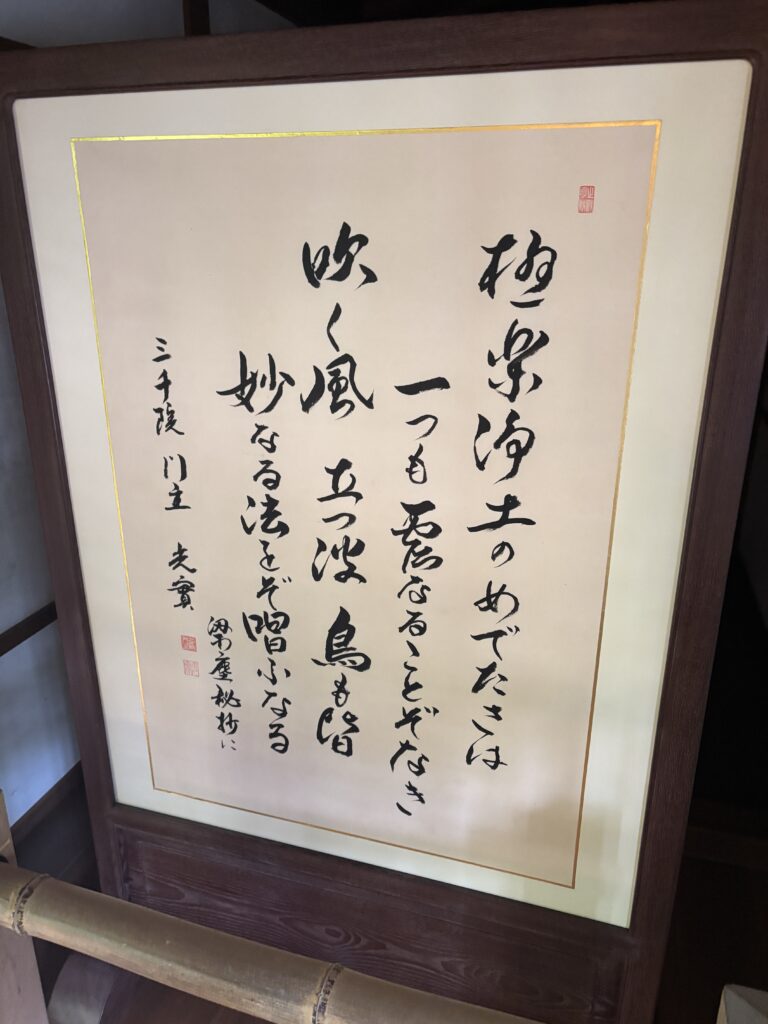 極楽浄土のめでたさは
一つも虚なることぞなき
吹く風 立つ波 鳥も皆
妙なる法をぞ唱ふなる
梁塵秘抄に
三千院 門主 光實